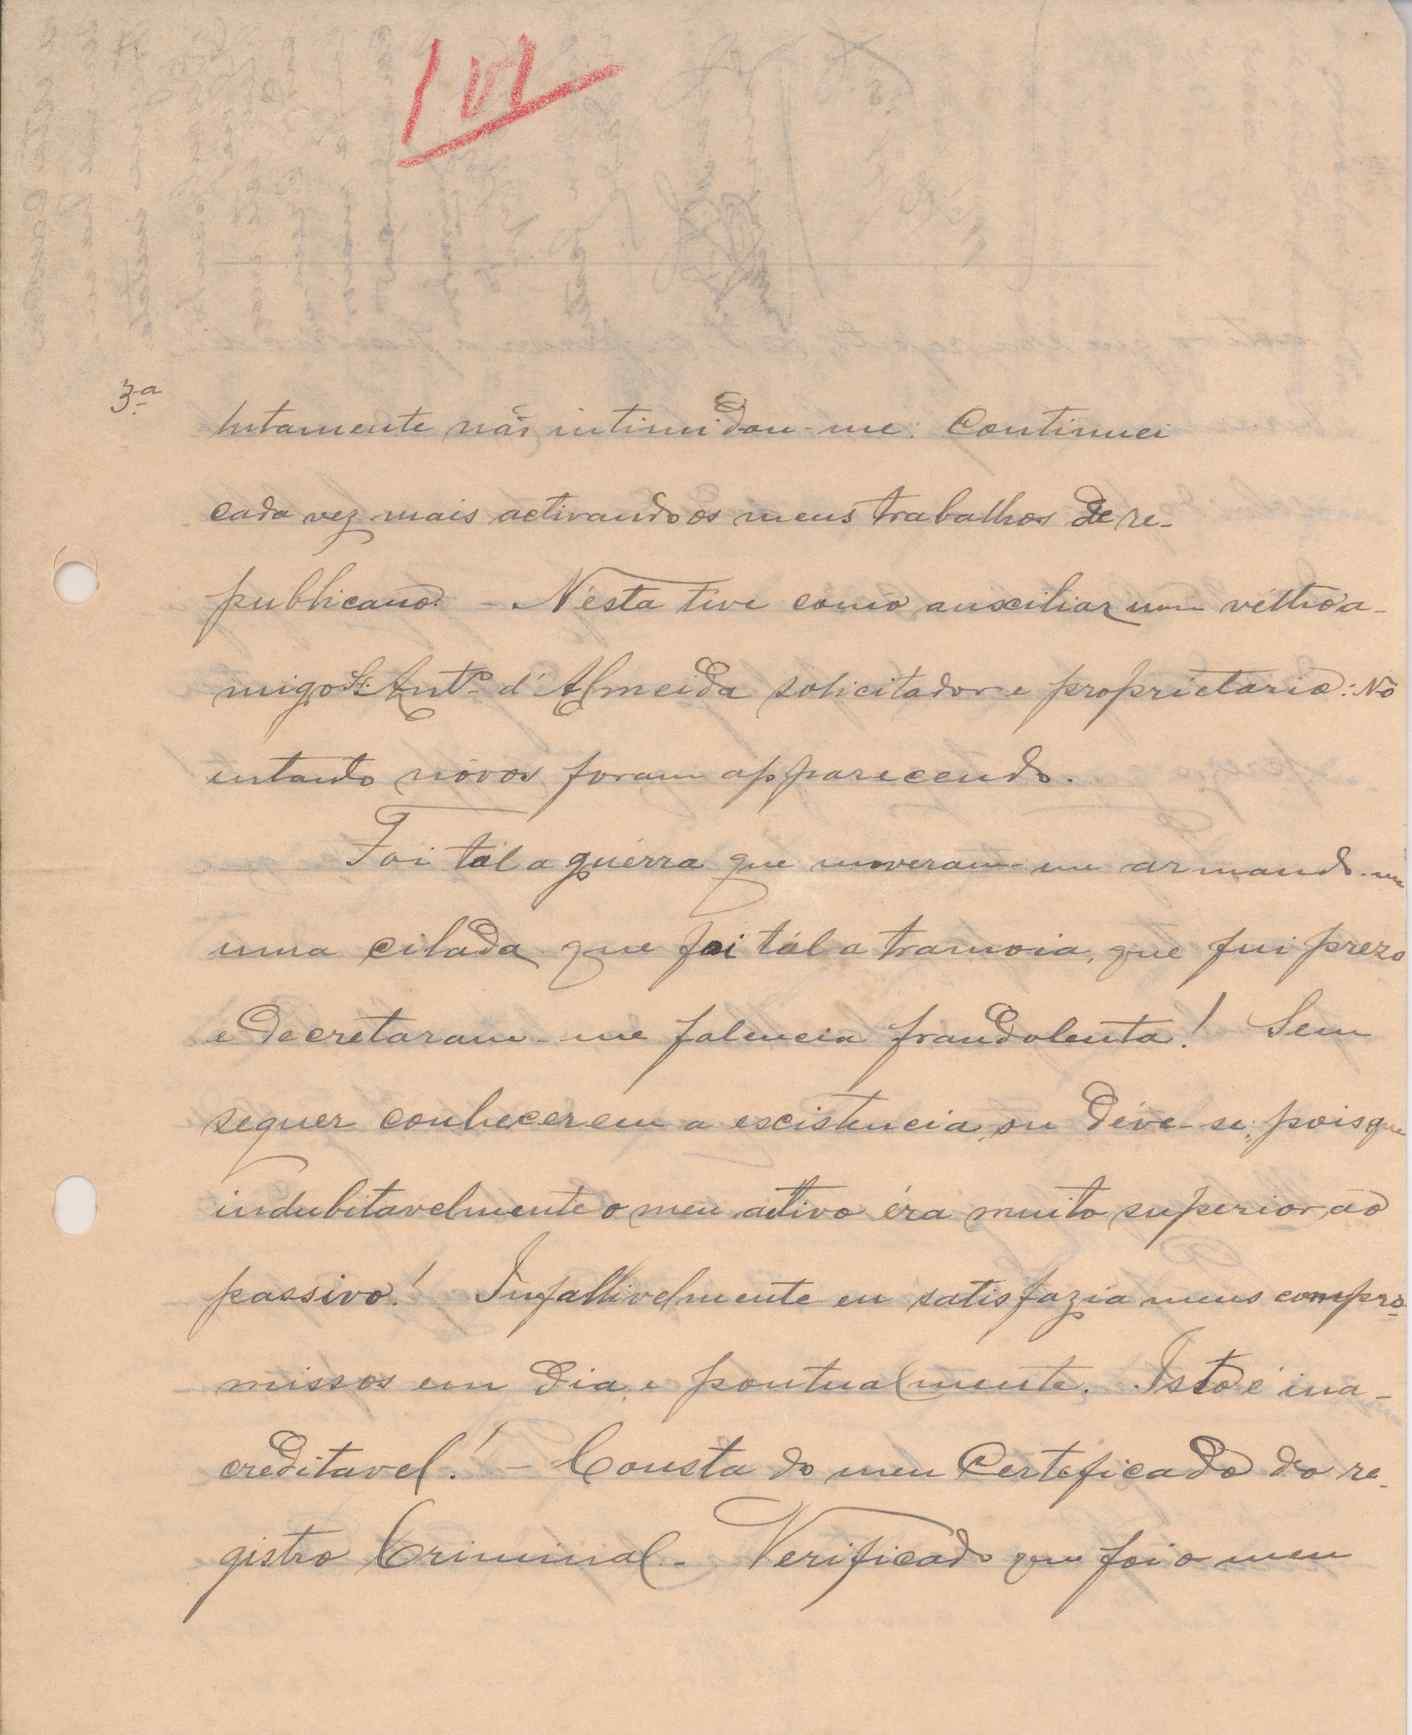 101
3ª
lutamente não, intimidou-me: Continuei
cada vez mais activando os meus trabalhos de re-
publicano. - Nésta tive como auxciliar um vélho a-
migo Sr. Antº d'Almeida solicitador e proprietario: No
entanto nóvos foram apparecendo.
Foi tál a guérra que moveram-me armando-me
uma cilada que foi tál a tramoia, que fui prezo
e decretaram-me falencia fraudolenta! Sem
sequer conhecerem a escistencia, ou déve-se; pois que
indubitavelmente o meu activo éra muito superior, ao
passivo! Infallivelmente eu satisfazia meus compro-
missos em dia, e pontualmente. Isto é ina-
creditavel! - Consta do meu Certeficado do re-
gistro Criminal - Verificado que foi o meu